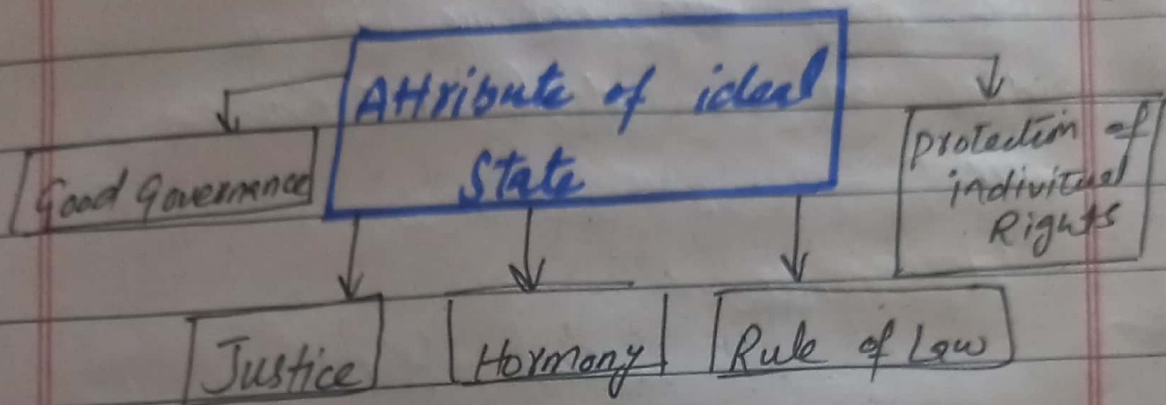 Attribute of ideal
State
Good Governence
Protection of
indivitual
Rights
Justice
Hormony
Rule of Law